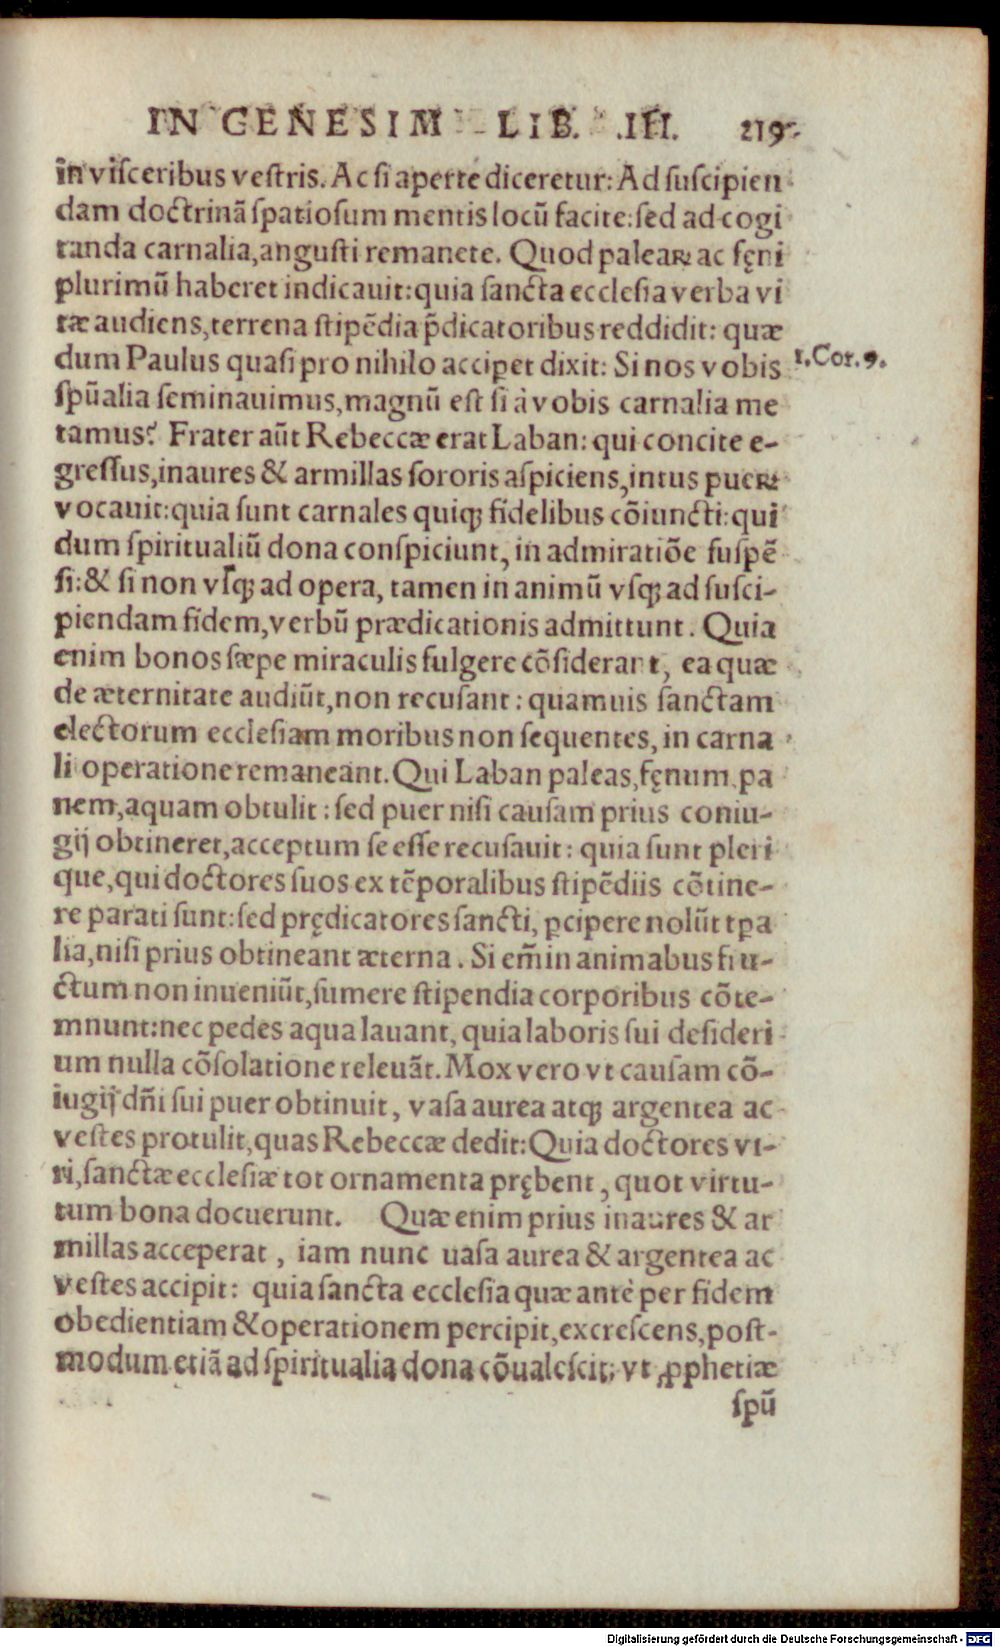 IN GENESIM LIB. III. 219
in visceribus vestris. Ac si aperte diceretur: Ad suscipien
dam doctrinã spatiosum mentis locũ facite: sed ad cogi
tanda carnalia, angusti remanete. Quod paleaꝝ ac fęni
plurimũ haberet indicauit: quia sancta ecclesia verba vi
tæ audiens, terrena stipẽdia p̃dicatoribus reddidit: quæ
dum Paulus quasi pro nihilo acciꝑet dixit: Si nos vobis
1. Cor. 9.
spũalia seminauimus, magnũ est si à vobis carnalia me
tamus? Frater aũt Rebeccæ erat Laban: qui concite e-
gressus, inaures & armillas sororis aspiciens, intus pueꝝ
vocauit: quia sunt carnales quiqꝫ fidelibus cõiuncti: qui
dum spiritualiũ dona conspiciunt, in admiratiõe suspẽ
si: & si non vsqꝫ ad opera, tamen in animũ vsqꝫ ad susci-
piendam fidem, verbũ prædicationis admittunt. Quia
enim bonos sæpe miraculis fulgere cõsiderant, ea quæ
de æternitate audiũt, non recusant: quamuis sanctam
electorum ecclesiam moribus non sequentes, in carna
li operatione remaneant. Qui Laban paleas, fęnum, pa
nem, aquam obtulit: sed puer nisi causam prius coniu-
gij obtineret, acceptum se esse recusauit: quia sunt pleri
que, qui doctores suos ex tẽporalibus stipẽdiis cõtine-
re parati sunt: sed prędicatores sancti, ꝑcipere nolũt tꝑa
lia, nisi prius obtineant æterna. Si em̃ in animabus fru-
ctum non inueniũt, sumere stipendia corporibus cõte-
mnunt: nec pedes aqua lauant, quia laboris sui desideri
um nulla cõsolatione releuãt. Mox vero vt causam cõ-
iugij dñi sui puer obtinuit, vasa aurea atqꝫ argentea ac
vestes protulit, quas Rebeccæ dedit: Quia doctores vi-
ri, sanctæ ecclesiæ tot ornamenta prębent, quot virtu-
tum bona docuerunt. Quæ enim prius inaures & ar
millas acceperat, iam nunc uasa aurea & argentea ac
vestes accipit: quia sancta ecclesia quæ antè per fidem
obedientiam & operationem percipit, excrescens, post-
modum etiã ad spiritualia dona cõualescit, vt ꝓphetiæ
spũ
Digitalisierung gefördert durch die Deutsche Forschungsgemeinschaft - DFG